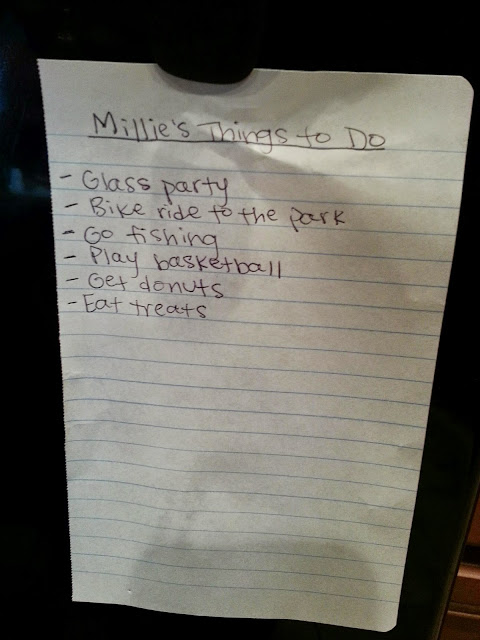 Millie's Things to Do
- Glass party
- Bike ride to the park
- Go fishing
- Play basketball
- Get donuts
- Eat treats